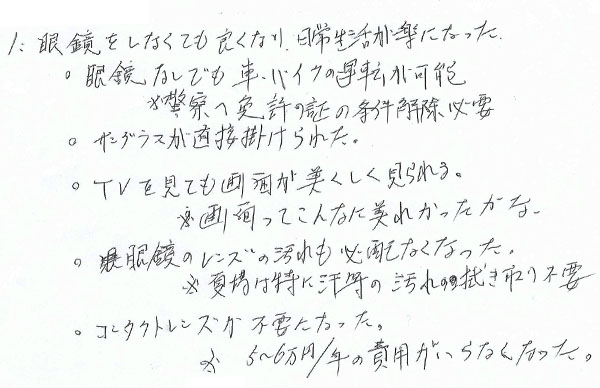 1: 眼鏡をしなくても良くなり、日常生活が楽になった.
○ 眼鏡なしでも車・バイクの運転が可能
※警察へ免許の証の条件解除必要
○ サングラスが直接掛けられた。
○ TVを見ても画面が美くしく見られる。
※画面ってこんなに美れかったかな、
○ 眼鏡のレンズの汚れも心配なくなった。
※夏場は特に汗等の汚れの拭き取り不要
○ コンタクトレンズが不要になった。
※ 5~6万円/年の費用がいらなくなった。